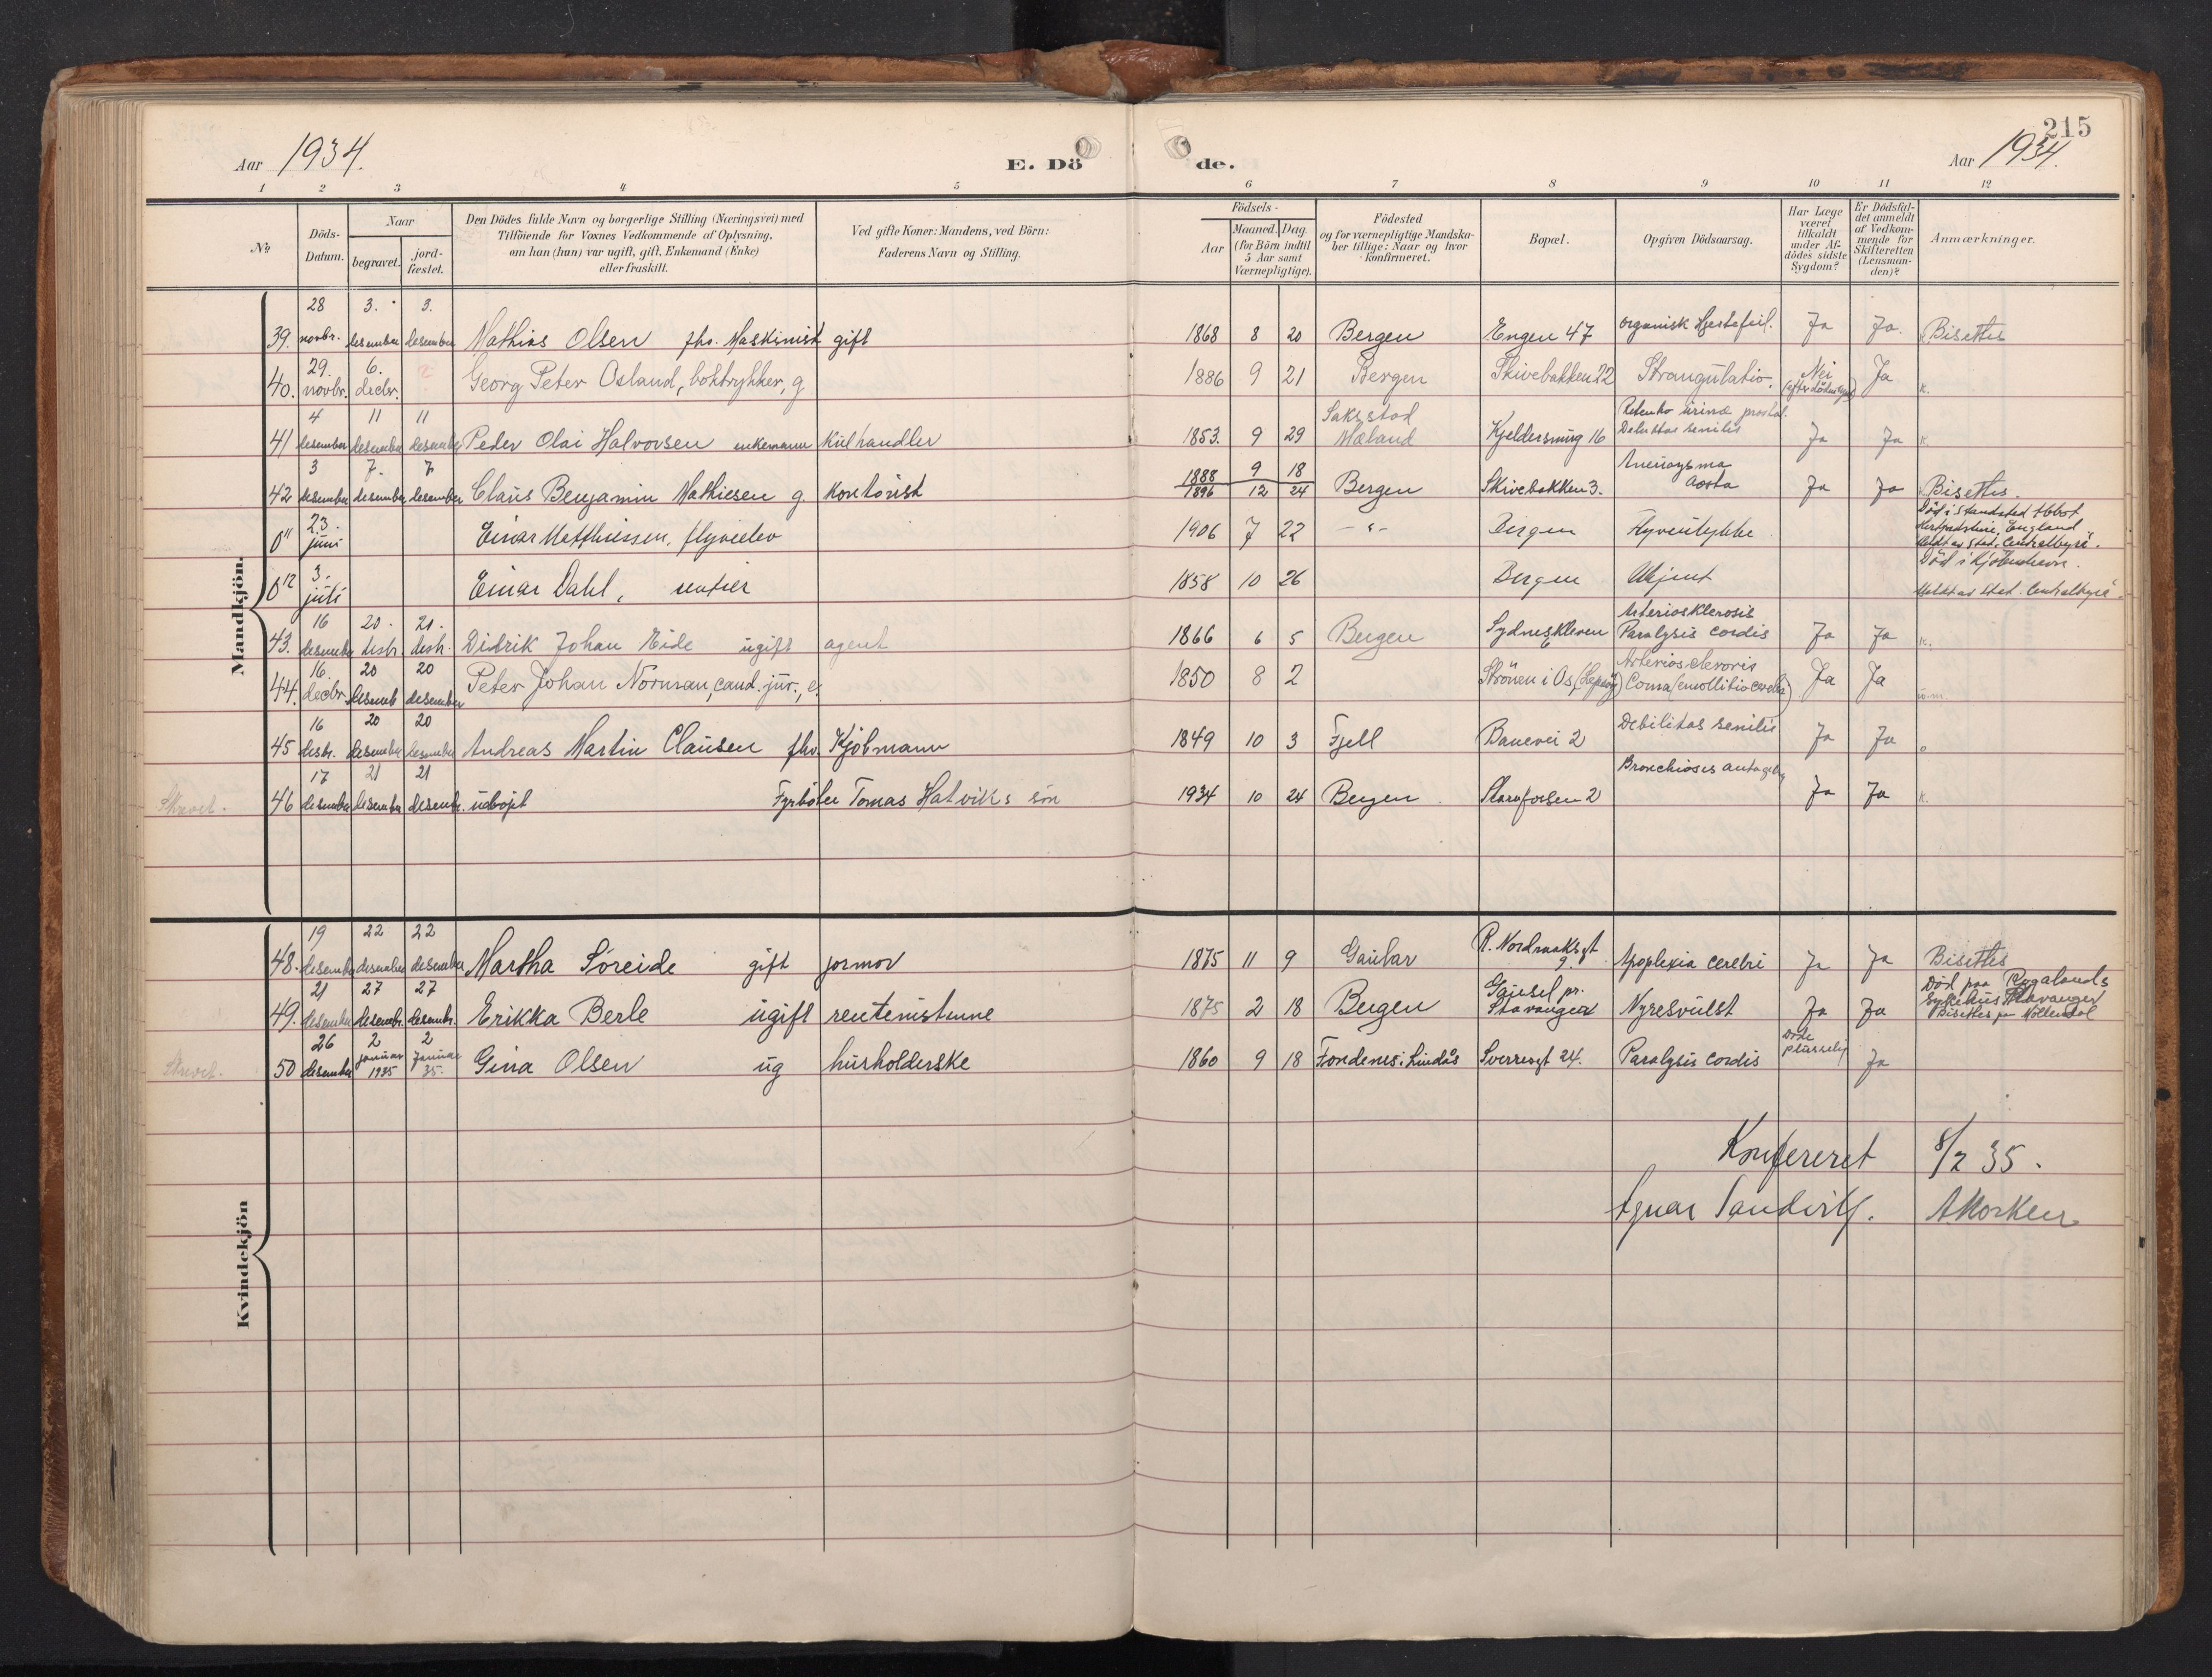 215
Aar 1934.
E. Dö de.
Aar 1934.
1 2 3 4 5 6 7 8 9 10 11 12
No
Döds-
Datum.
Naar
begravet.
jord-
fæstet.
Den Dödes fulde Navn og borgerlige Stilling (Næringsvei) med
Tilföiende for Voxnes Vedkommende af Oplysning,
om han (hun) var ugift, gift, Enkemand (Enke)
eller fraskilt.
Ved gifte Koner: Mandens, ved Börn:
Faderens Navn og Stilling.
Födsels-
Aar
Maaned. Dag.
(for Börn indtil
5 Aar samt
Værnepligtige).
Födested
og for værnepligtige Mandska-
ber tillige: Naar og hvor
konfirmeret.
Bopæl.
Opgiven Dödsaarsag.
Har Læge
været
tilkaldt
under Af-
dödes sidste
Sygdom?
Er Dödsfal-
det anmeldt
af Vedkom-
mende for
Skifteretten
(Lensman-
den)?
Anmærkninger.
Mandkjön.
28 3. 3.
39. novbr. desember desember Mathias Olsen fhv. Maskinist gift 1868 8 20 Bergen Engen 47 organisk Hjertefeil. Ja Ja. Bisettes
29. 6.
40. novbr. decbr. Georg Peter Osland, boktrykker, g. 1886 9 21 Bergen Skivebakken 22 Strangulatio. Nei Ja k.
4 11 11 Saksstad
41 desember desember desember Peder Olai Halvorsen enkemann Kulhandler 1853. 9 29 Mæland Kjeldersmug 16 senilis Ja Ja k.
3 7. 7.
42 desember desember desember Claus Benjamin Mathiesen g. Kontorist 1888 9 18
1896 12 24 Bergen Skivebakken 3. Aorta Ja Ja Bisettes.
23.
011 juni Einar Matthiessen, flyveelev 1906 7 22 -"- Bergen Flyveulykke Död i Standsted Abbot
Hertfordshire, England.
Meldt av Stat. Centralbyrå.
3.
012 juli Einar Dahl, rentier 1858 10 26 Bergen Ukjent Död i Kjöbenhavn.
Meldt av Stat. Centralbyrå.
16 20. 20. Arteriosklerosis
43. desember desbr. desbr. Didrik Johan Eide ugift agent 1866 6 5 Bergen Sydneskleven Paralysis cordis Ja Ja k.
16. 20 20
44. decbr. desemb desember Peter Johan Norman, cand. jur., e. 1850 8 2 Strönen i Os, Coma Ja Ja
16 20 20 Debilitas senilis
45 desbr. desember desember Andreas Martin Clausen fhv. Kjöbmann 1849 10 3 Fjell Banevei 2 Ja Ja
17 21 21
Skrevet. 46 desember desember desembr. udöpt Fyrböter Tomas Hatviks sön 1934 10 24 Bergen Ja Ja k.
Kvindekjön
19 22 22 R. Nordraaksgt
48. desember desember desember Martha Söreide gift jormor 1875 11 9 Gaular 9. Apoplexia cerebri Ja Ja Bisettes
21 27 27 Gausel pr. Död paa Rogalands
49. desember desembr. desembr. Erikka Berle ugift rentenistinne 1875 2 18 Bergen Stavanger Nyresvulst Ja Ja Sykehus Stavanger
Bisettes paa Möllendal
26 2 2
Skrevet. 50 desember januar 1935 Januar 35. Gina Olsen ug husholderske 1860 9 18 Fondenes i Lindås Sverresgt 24. Paralysis cordis Döde plutselig Ja
Konfereret 8/2 35.
Agnar Sandvik.